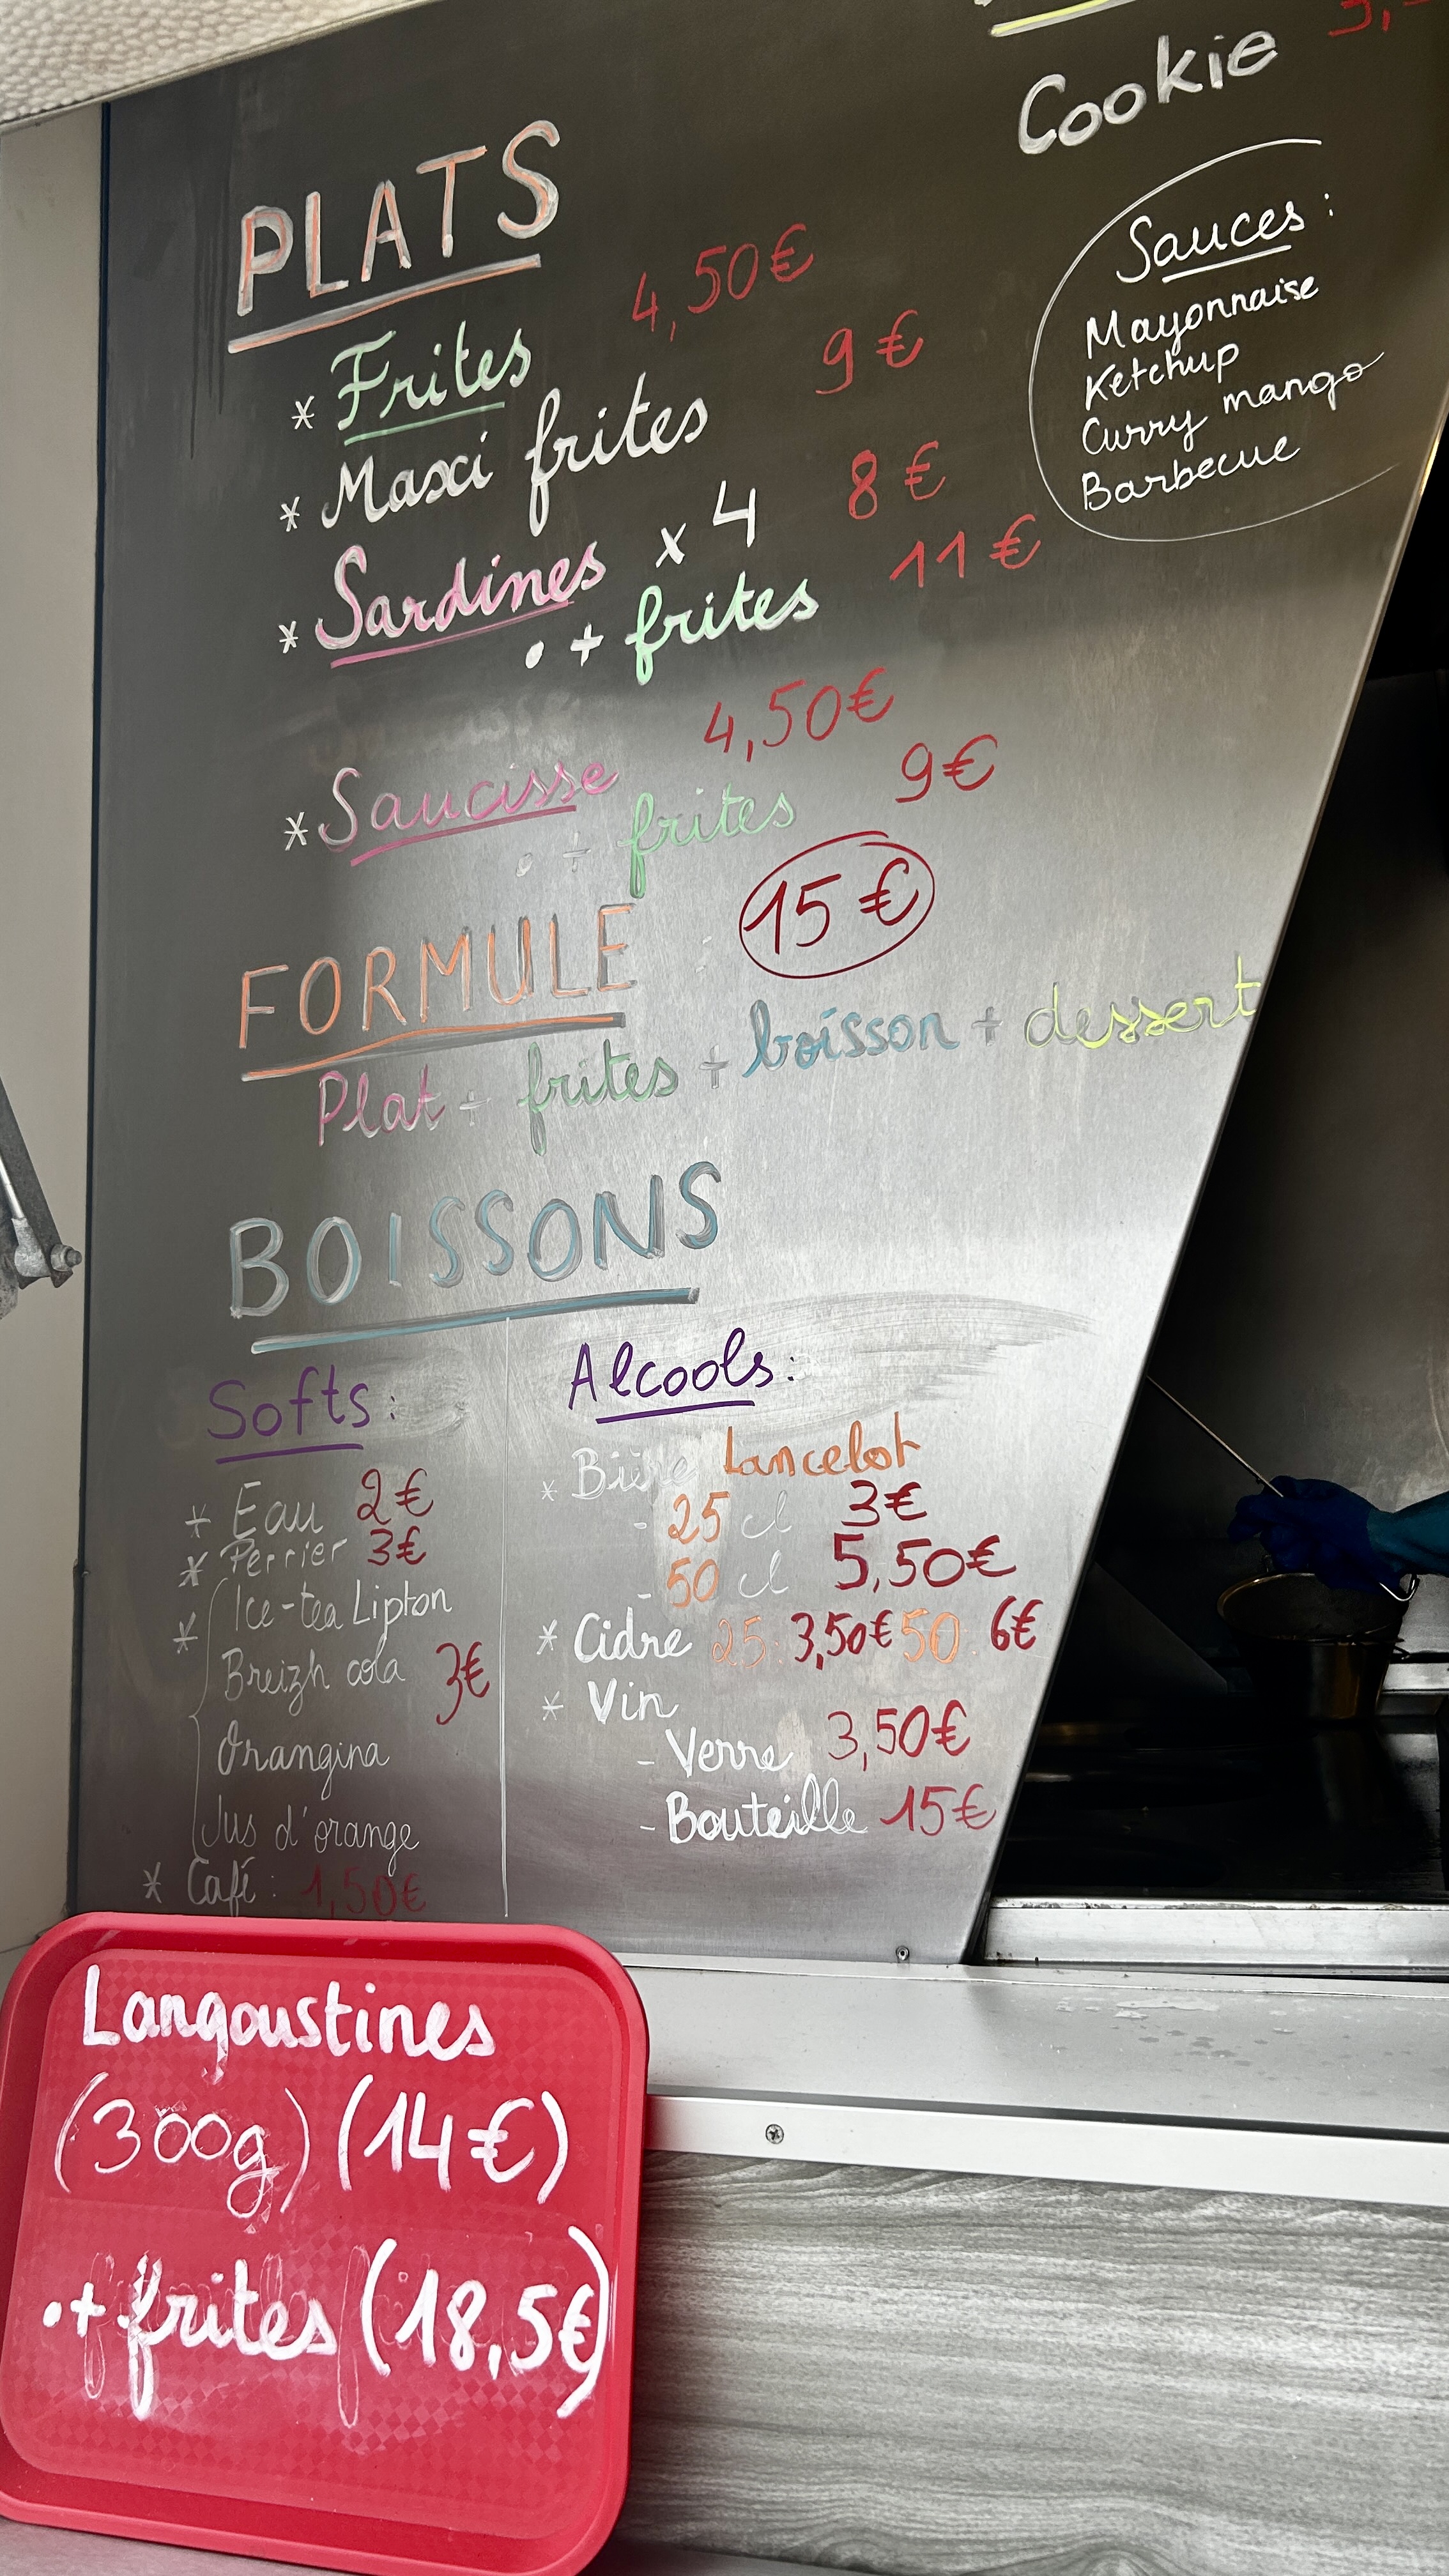 Cookie
Sauces :
Mayonnaise
Ketchup
Curry mango
Barbecue
PLATS
* Frites 4,50€
* Maxi frites 9€
* Sardines x 4 8€
• + frites 11€
* Saucisse 4,50€
• + frites 9€
FORMULE : 15€
Plat + frites + boisson + dessert
BOISSONS
Softs :
* Eau 2€
* Perrier 3€
* Ice-tea Lipton
Breizh cola 3€
Orangina
Jus d'orange
* Café : 1,50€
Alcools :
* Bière Lancelot
- 25 cl 3€
- 50 cl 5,50€
* Cidre 25: 3,50€ 50: 6€
* Vin
- Verre 3,50€
- Bouteille 15€
Langoustines
(300g) (14€)
•+ frites (18,5€)